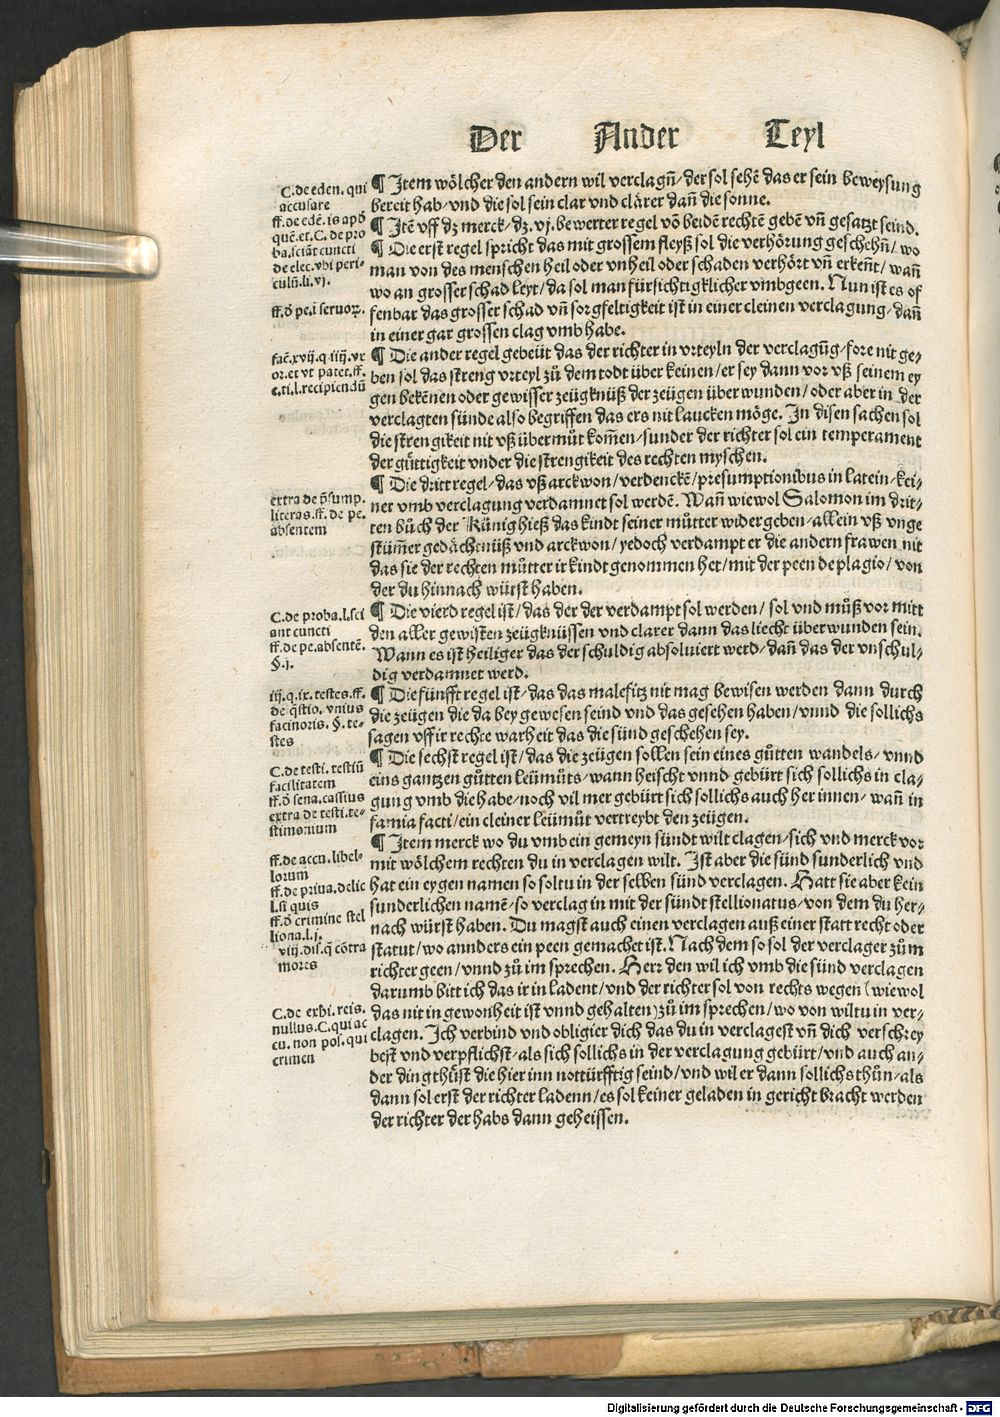 Der Ander Teyl
¶ Item wölcher den andern wil verclagn̄/der sol sehē das er sein beweysung
bereit hab/vnd die sol sein clar vnd clärer dan̄ die sonne.
¶ Itē vff dz merck/dz.vj.bewerter regel vō beidē rechtē gebē vn̄ gesatzt seind.
¶ Die erst regel spricht das mit grossem fleyß sol die verhörung geschehn̄/wo
man von des menschen heil oder vnheil oder schaden verhört vn̄ erken̄t/wan̄
wo an grosser schad leyt/da sol man fürsichtigklicher vmbgeen. Nun ist es of
fenbar das grosser schad vn̄ sorgfeltigkeit ist in einer cleinen verclagung/dan̄
in einer gar grossen clag vmb habe.
¶ Die ander regel gebeüt das der richter in vrteyln der verclagūg/fore nit ge/
ben sol das streng vrteyl zů dem todt über keinen/er sey dann vor vß seinem ey
gen bekēnen oder gewisser zeügknüß der zeügen überwunden/oder aber in der
verclagten sünde also begriffen das ers nit laucken möge. In disen sachen sol
die strengikeit nit vß übermůt kom̄en/sunder der richter sol ein temperament
der gůttigkeit vnder die strengikeit des rechten myschen.
¶ Die dritt regel/das vß arckwon/verdenckē/presumptionibus in latein/kei/
ner vmb verclagung verdamnet sol werdē. Wan̄ wiewol Salomon im drit/
ten bůch der Künig hieß das kindt seiner můtter widergeben/allein vß vnge
stüm̄er gedächtnüß vnd arckwon/yedoch verdampt er die andern frawen nit
das sie der rechten můtter ir kindt genommen het/mit der peen de plagio/von
der du hinnach würst haben.
¶ Die vierd regel ist/das der der verdampt sol werden/sol vnd můß vor mitt
den aller gewisten zeügknüssen vnd clarer dann das liecht überwunden sein.
Wann es ist heiliger das der schuldig absoluiert werd/dan̄ das der vnschul/
dig verdamnet werd.
¶ Die fünfft regel ist/das das malefitz nit mag bewisen werden dann durch
die zeügen die da bey gewesen seind vnd das gesehen haben/vnnd die sollichs
sagen vff ir rechte warheit das die sünd geschehen sey.
¶ Die sechst regel ist/das die zeügen sollen sein eines gůtten wandels/vnnd
eins gantzen gůtten leümůts/wann heischt vnnd gebürt sich sollichs in cla/
gung vmb die habe/noch vil mer gebürt sich sollichs auch her innen/wan̄ in
famia facti/ein cleiner leümůt vertreybt den zeügen.
¶ Item merck wo du vmb ein gemeyn sündt wilt clagen/sich vnd merck vor
mit wölchem rechten du in verclagen wilt. Ist aber die sünd sunderlich vnd
hat ein eygen namen so soltu in der selben sünd verclagen. Hatt sie aber kein
sunderlichen namē/so verclag in mit der sündt stellionatus/von dem du her/
nach würst haben. Du magst auch einen verclagen auß einer statt recht oder
statut/wo annders ein peen gemachet ist. Nach dem so sol der verclager zům
richter geen/vnnd zů im sprechen. Herr den wil ich vmb die sünd verclagen
darumb bitt ich das ir in ladent/vnd der richter sol von rechts wegen (wiewol
das nit in gewonheit ist vnnd gehalten) zů im sprechen/wo von wiltu in ver/
clagen. Ich verbind vnd obligier dich das du in verclagest vn̄ dich verschrey
best vnd verpflichst/als sich sollichs in der verclagung gebürt/vnd auch an/
der ding thůst die hier inn nottürfftig seind/vnd wil er dann sollichs thůn/als
dann sol erst der richter ladenn/es sol keiner geladen in gericht bracht werden
der richter der habs dann geheissen.
C.de eden. qui
accusare
ff.de edē. is apd̄
quē.et.C.de pro
ba.sciāt cuncti
de elec.vbi peri/
culū.li.vj.
ff.d̄ pe.i seruoꝝ.
fac̄.xvij.q.iiij.vx
or.et vt patet.ff.
e.ti.l.recipiendū
extra de p̄sump.
literas.ff.de pe.
absentem
C.de proba.l.sci
ant cuncti
ff.de pe.absentē.
§.j.
iij.q.ix.testes.ff.
de q̄stio. vnius
facinoris.§.te/
stes
C.de testi. testiū
facilitatem
ff.d̄ sena.cassius
extra de testi.te/
stimonium
ff.de accu.libel/
lorum
ff.de priua.delic
l.si quis
ff.d̄ crimine stel
liona.l.j.
viij.dis.q̄ cōtra
mores
C.de exhi. reis.
nullus.C.qui ac
cu.non pos.qui
crimen
Digitalisierung gefördert durch die Deutsche Forschungsgemeinschaft - DFG